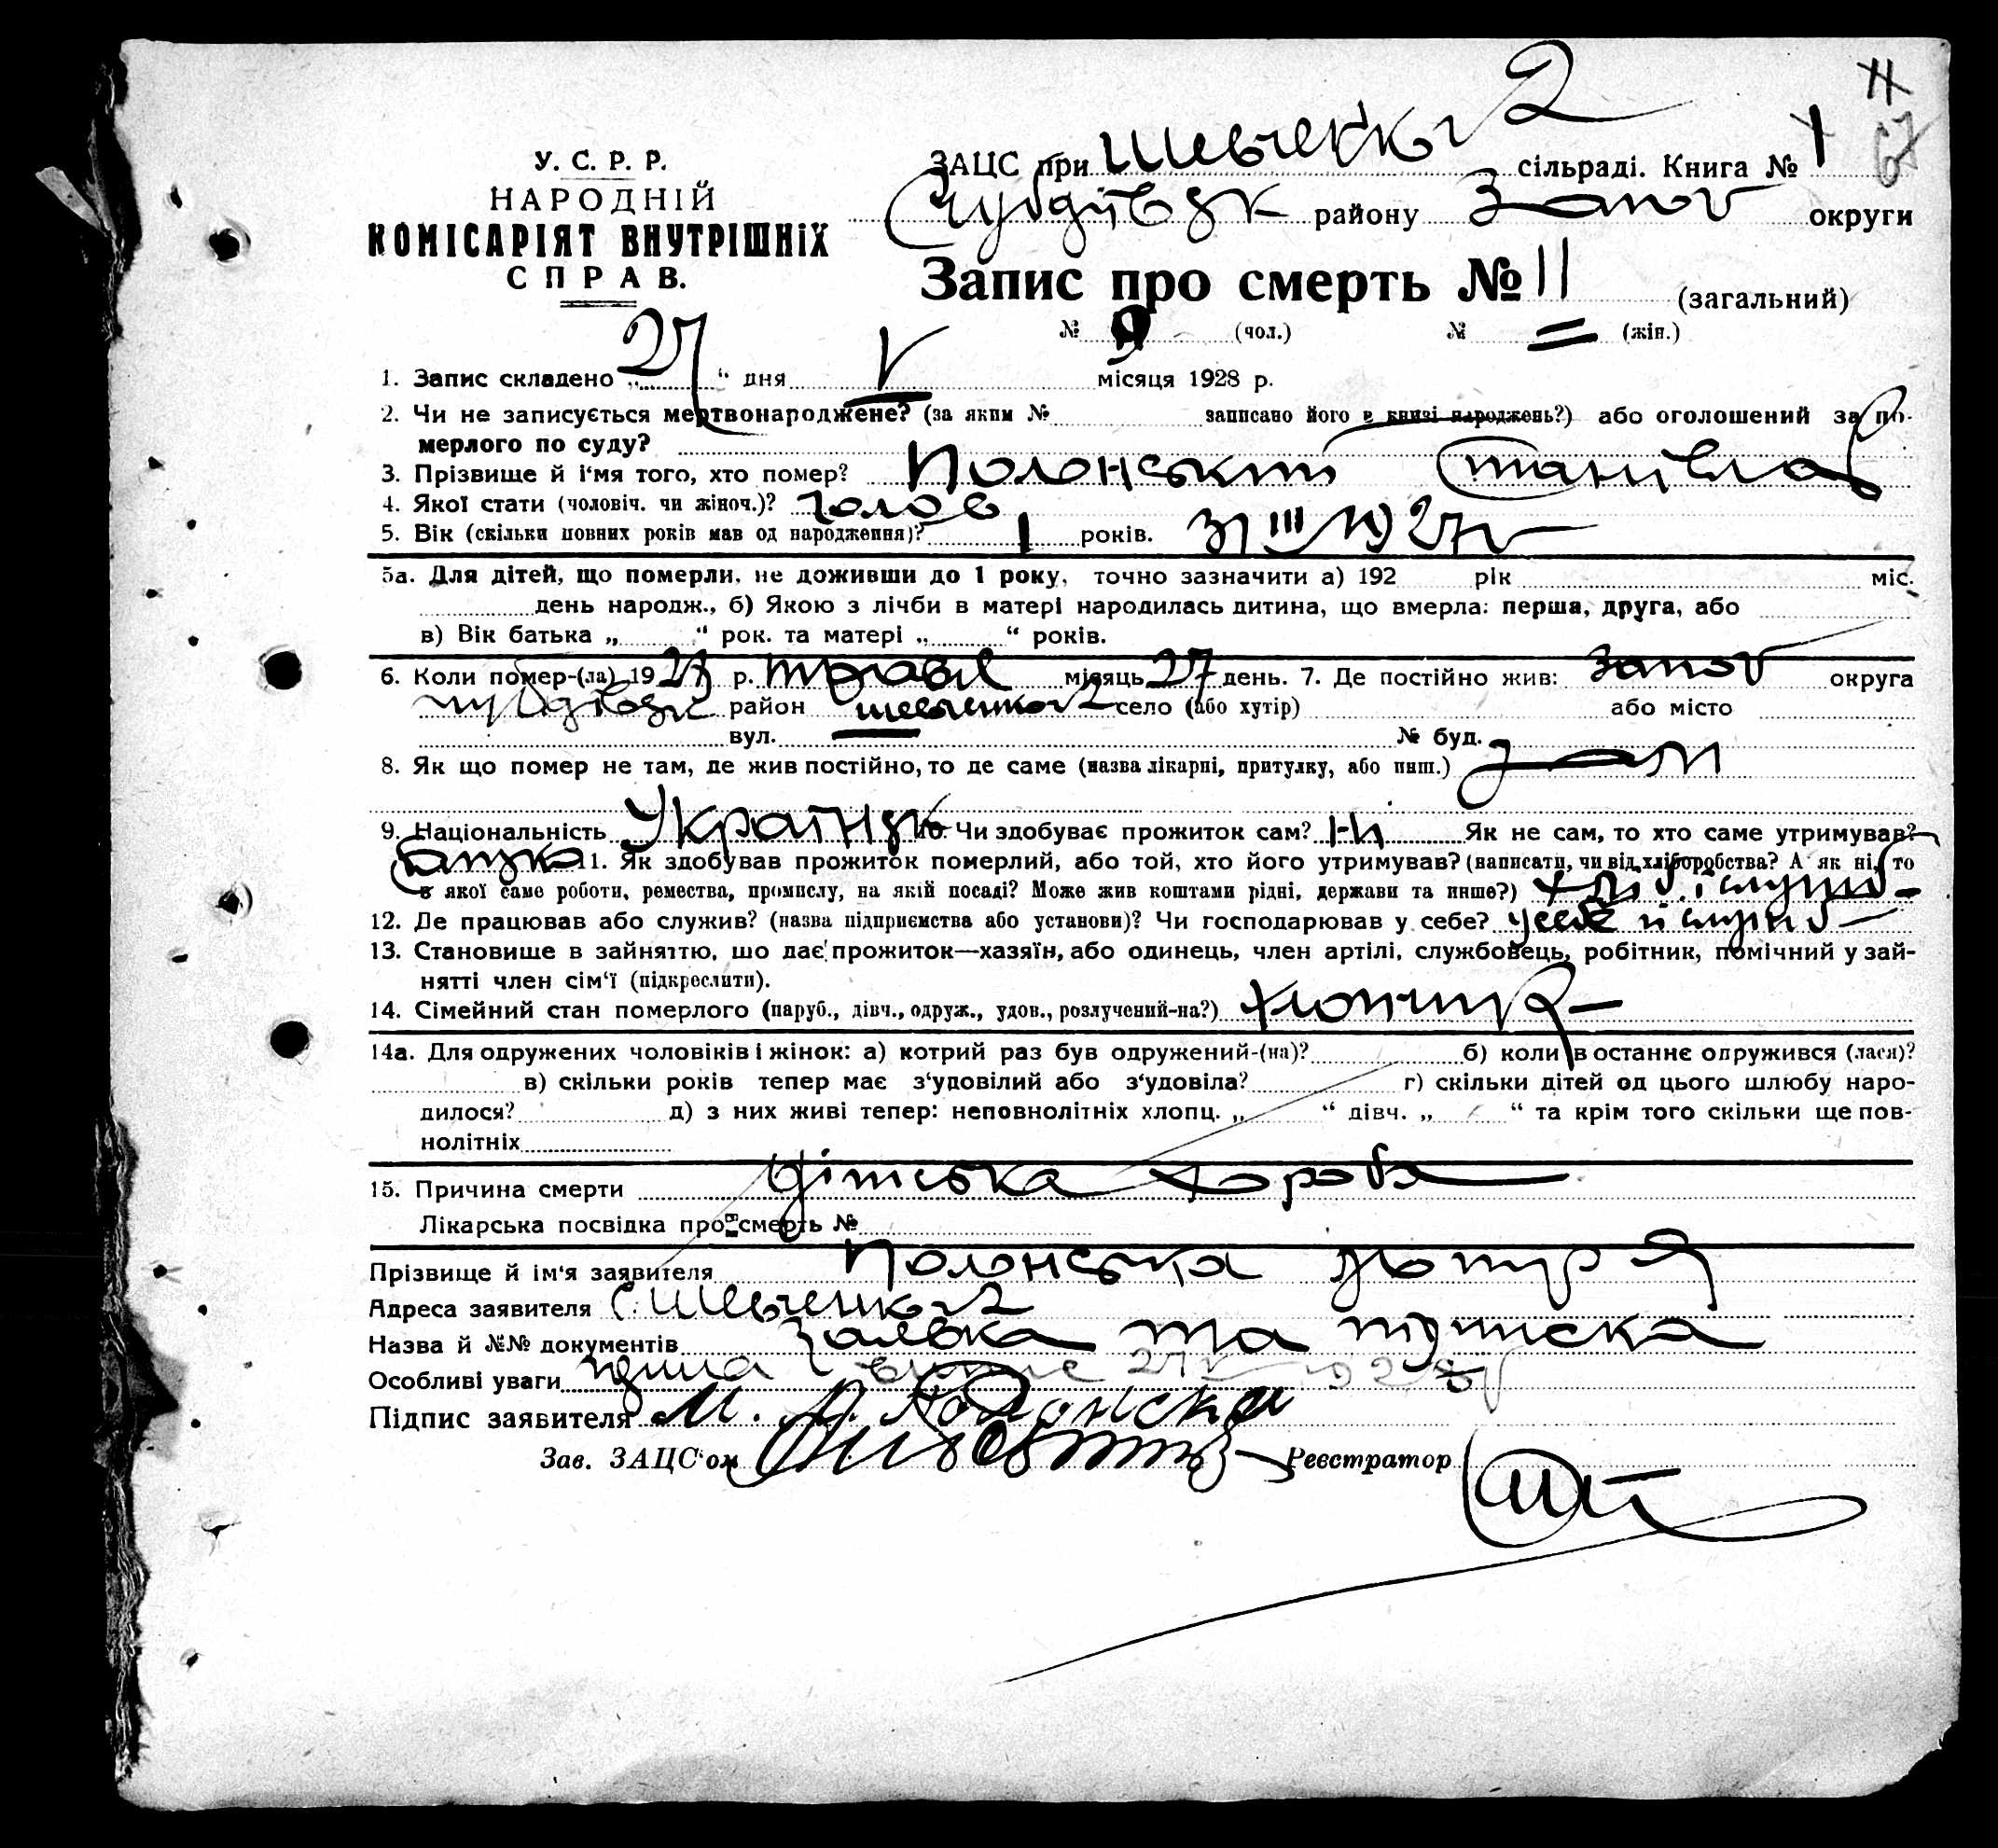 У. С. Р. Р.
НАРОДНІЙ
КОМІСАРІЯТ ВНУТРІШНІХ
СПРАВ.
ЗАЦС при сільраді. Книга № 1
району Запор округи
Запис про смерть № 11 (загальний)
№ 9 (чол.) № = (жін.)
1. Запис складено „27“ дня V місяця 1928 р.
2. Чи не записується мертвонароджене? (за яким № записано його в книзі народжень?) або оголошений за по-
мерлого по суду?
3. Прізвище й і'мя того, хто помер? Полонський Станіслав
4. Якої стати (чоловіч. чи жіноч.)? чолов
5. Вік (скільки повних років мав од народження)? 1 років. 31 III 1927 р
5а. Для дітей, що померли, не доживши до 1 року, точно зазначити а) 192 рік міс.
день народж., б) Якою з лічби в матері народилась дитина, що вмерла: перша, друга, або
в) Вік батька „ “ рок. та матері „ “ років.
6. Коли помер-(ла) 1928 р. травня місяць 27 день. 7. Де постійно жив: Запор округа
район село (або хутір) або місто
вул. № буд.
8. Як що помер не там, де жив постійно, то де саме (назва лікарні, притулку, або инш.) там
9. Національність Українець 10. Чи здобуває прожиток сам? Ні Як не сам, то хто саме утримував?
батько 11. Як здобував прожиток померлий, або той, хто його утримував? (написати, чи від хліборобства? А як ні, то
в якої саме роботи, ремества, промислу, на якій посаді? Може жив коштами рідні, держави та инше?) хліб і служб
12. Де працював або служив? (назва підприємства або установи)? Чи господарював у себе? у себе й служив
13. Становище в зайняттю, що дає прожиток—хазяїн, або одинець, член артілі, службовець, робітник, помічний у зай-
нятті член сім'ї (підкреслити).
14. Сімейний стан померлого (паруб., дівч., одруж., удов., розлучений-на?) хлопчик
14а. Для одружених чоловіків і жінок: а) котрий раз був одружений-(на)? б) коли в останнє одружився (лася)?
в) скільки років тепер має з'удовілий або з'удовіла? г) скільки дітей од цього шлюбу наро-
дилося? д) з них живі тепер: неповнолітніх хлопц. „ “ дівч. „ “ та крім того скільки ще пов-
нолітніх
15. Причина смерти дітська хороба
Лікарська посвідка про смерть №
Прізвище й ім'я заявителя Полонська
Адреса заявителя с.
Назва й №№ документів заявка та
Особливі уваги
Підпис заявителя М. Полонская
Зав. ЗАЦС'ом Реєстратор